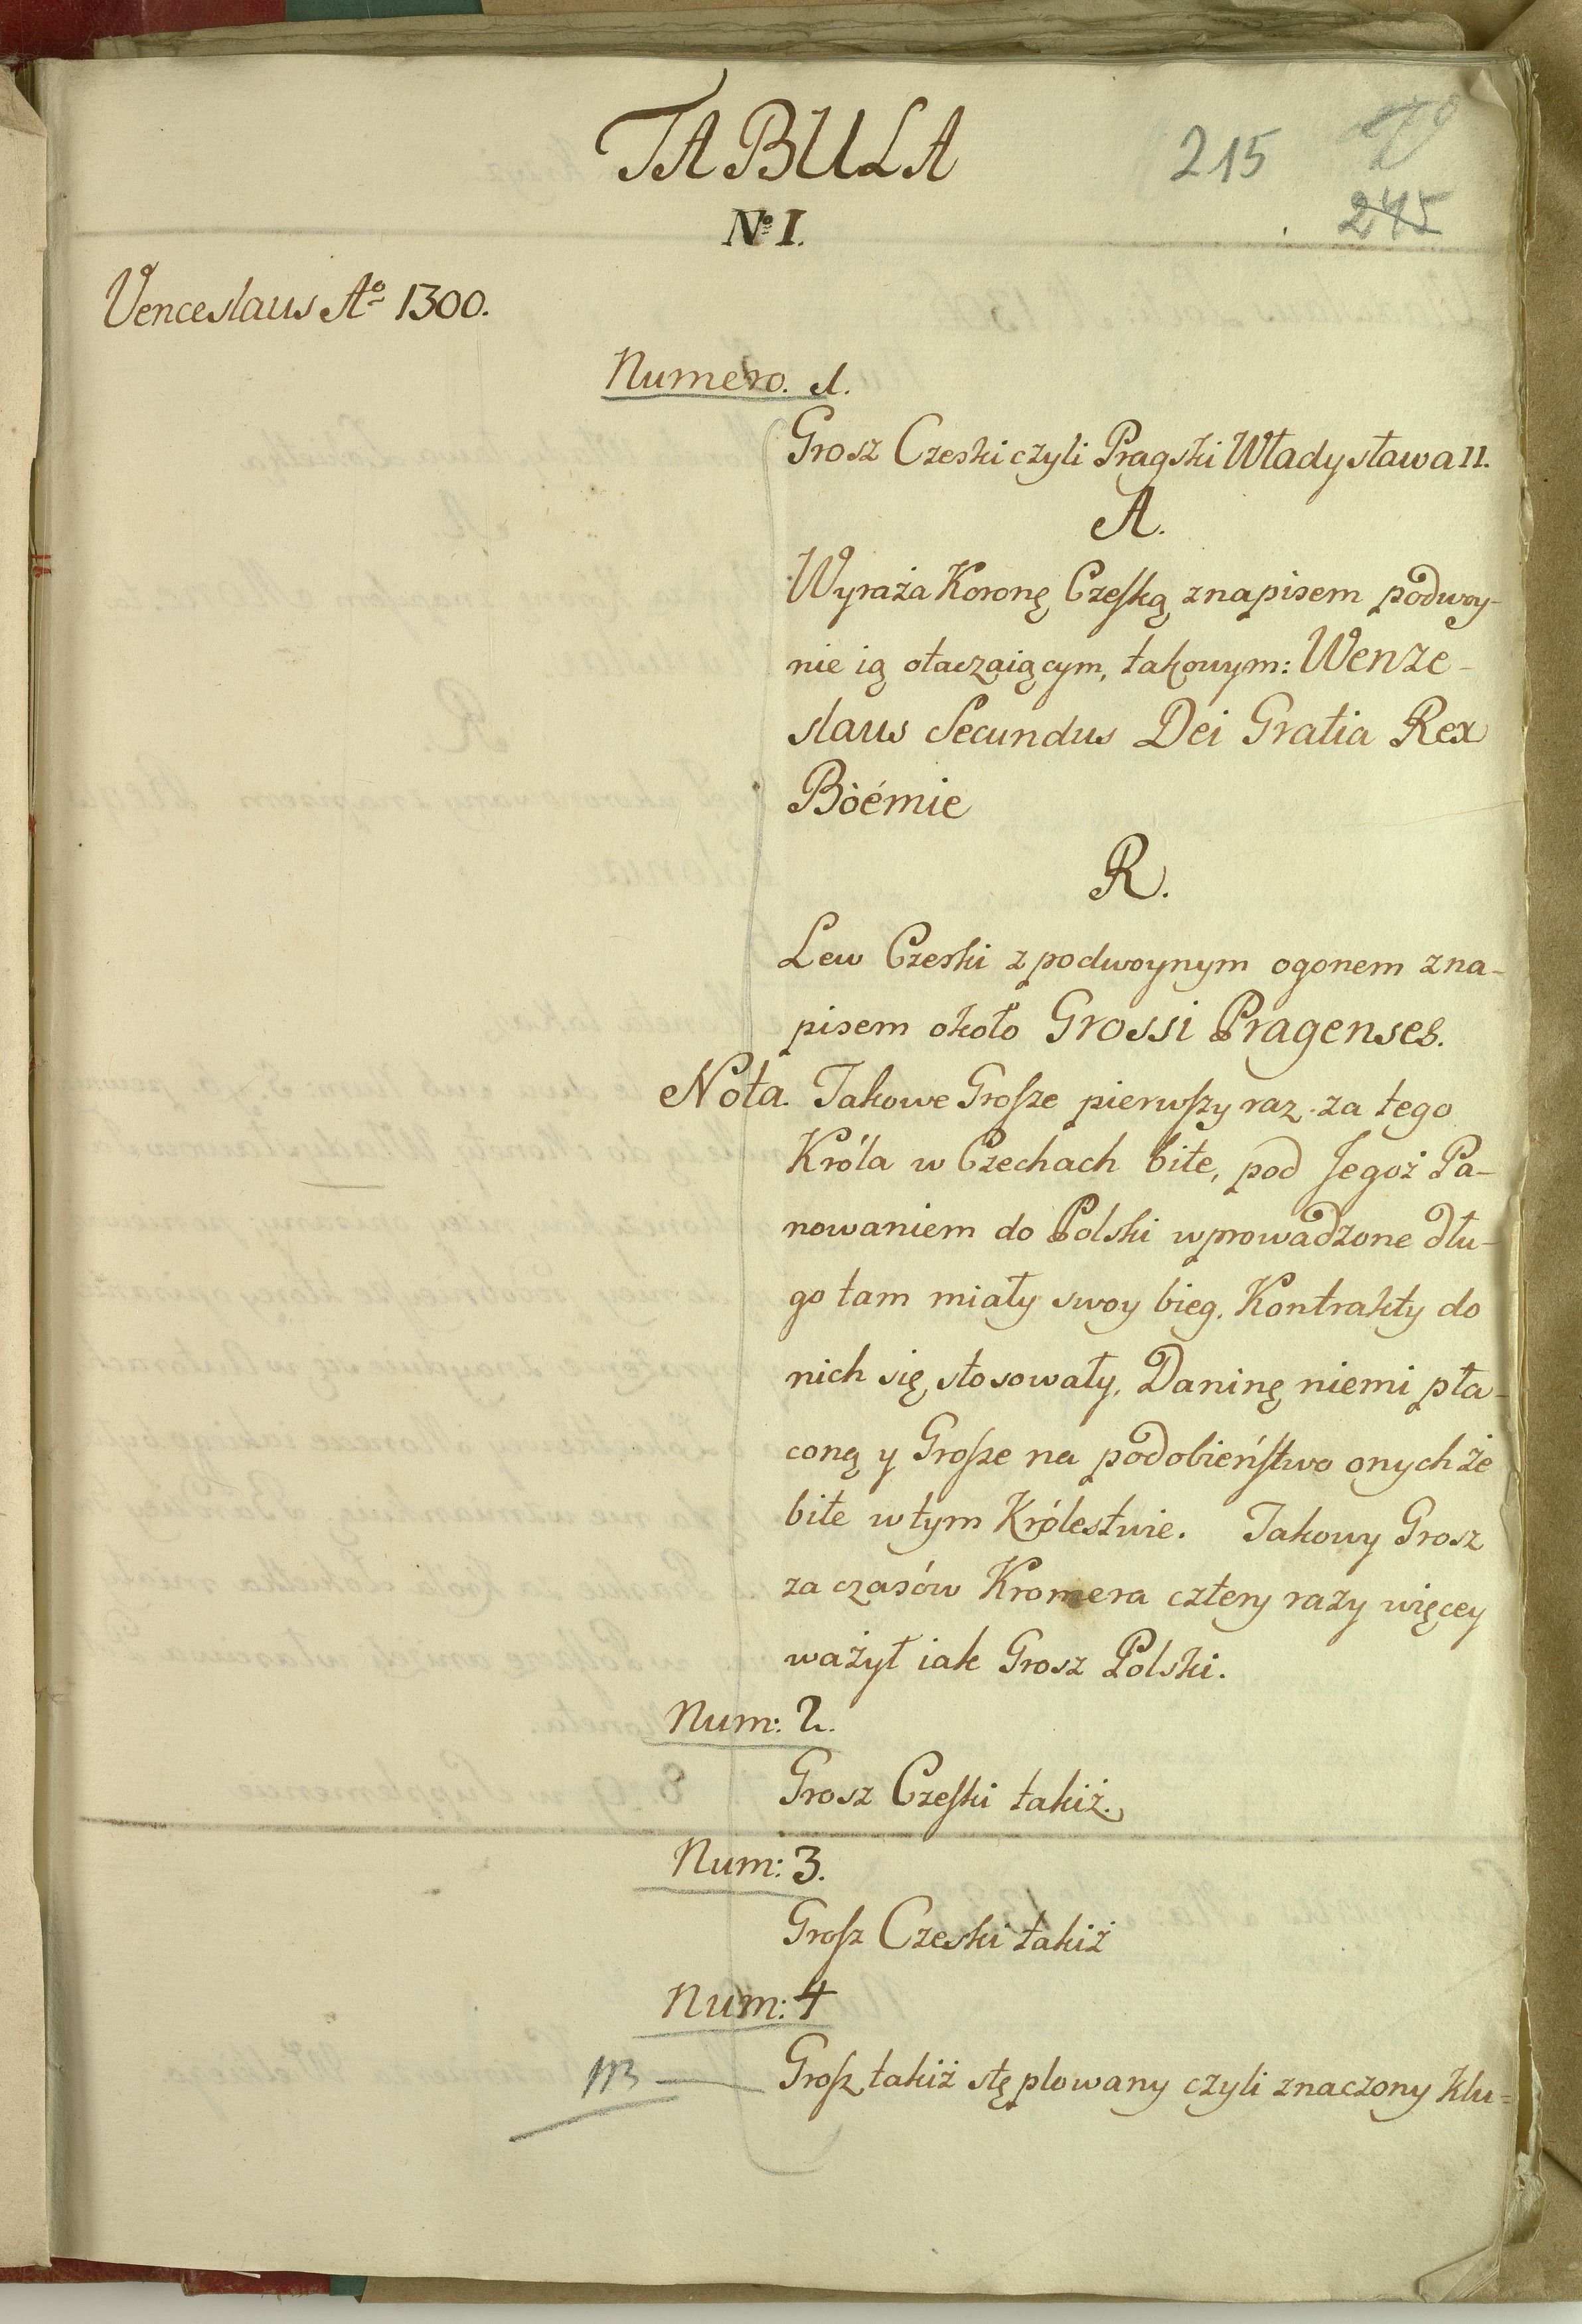 TABULA
215
245
No I.
Venceslaus Ao 1300.
Numero. 1.
Grosz Czeski czyli Pragski Władysława II.
A.
Wyraża Koronę Czeſką znapisem podwoy-
nie ią otaczaiącym, takowym: Wenze-
slaus Secundus Dei Gratia Rex
Böémie
R.
Lew Czeski z podwoynym ogonem zna-
pisem około Grossi Pragenses.
Nota. Takowe Groſze pierwſzy raz za tego
Króla w Czechach bite, pod Jegoż Pa-
nowaniem do Polski wprowadzone dłu-
go tam miały swoy bieg. Kontrakty do
nich się stosowały. Daninę niemi pła-
coną y Groſze na podobieńſtwo onychże
bite w tym Królestwie. Takowy Grosz
za czasów Kromera cztery razy więcey
ważył iak Grosz Polski.
Num: 2.
Grosz Czeſki takiż.
Num: 3.
Groſz Czeski takiż
Num: 4
Groſz takiż stęplowany czyli znaczony Klu=